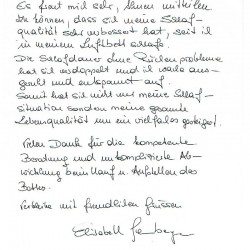 Es freut mich sehr, Ihnen mitteilen
zu können, dass sich meine Schlaf-
qualität sehr verbessert hat, seit ich
in meinem Luftbett schlafe.
Die Schlafdauer ohne Rückenprobleme
hat sich verdoppelt und ich wache aus-
geruht und entspannt auf.
Somit hat sich nicht nur meine Schlaf-
situation sondern meine gesamte
Lebensqualität um ein vielfaches gesteigert.
Vielen Dank für die kompetente
Beratung und unkomplizierte Ab-
wicklung beim Kauf u. Aufstellen des
Bettes.
Verbleibe mit freundlichen Grüssen
Elisabeth